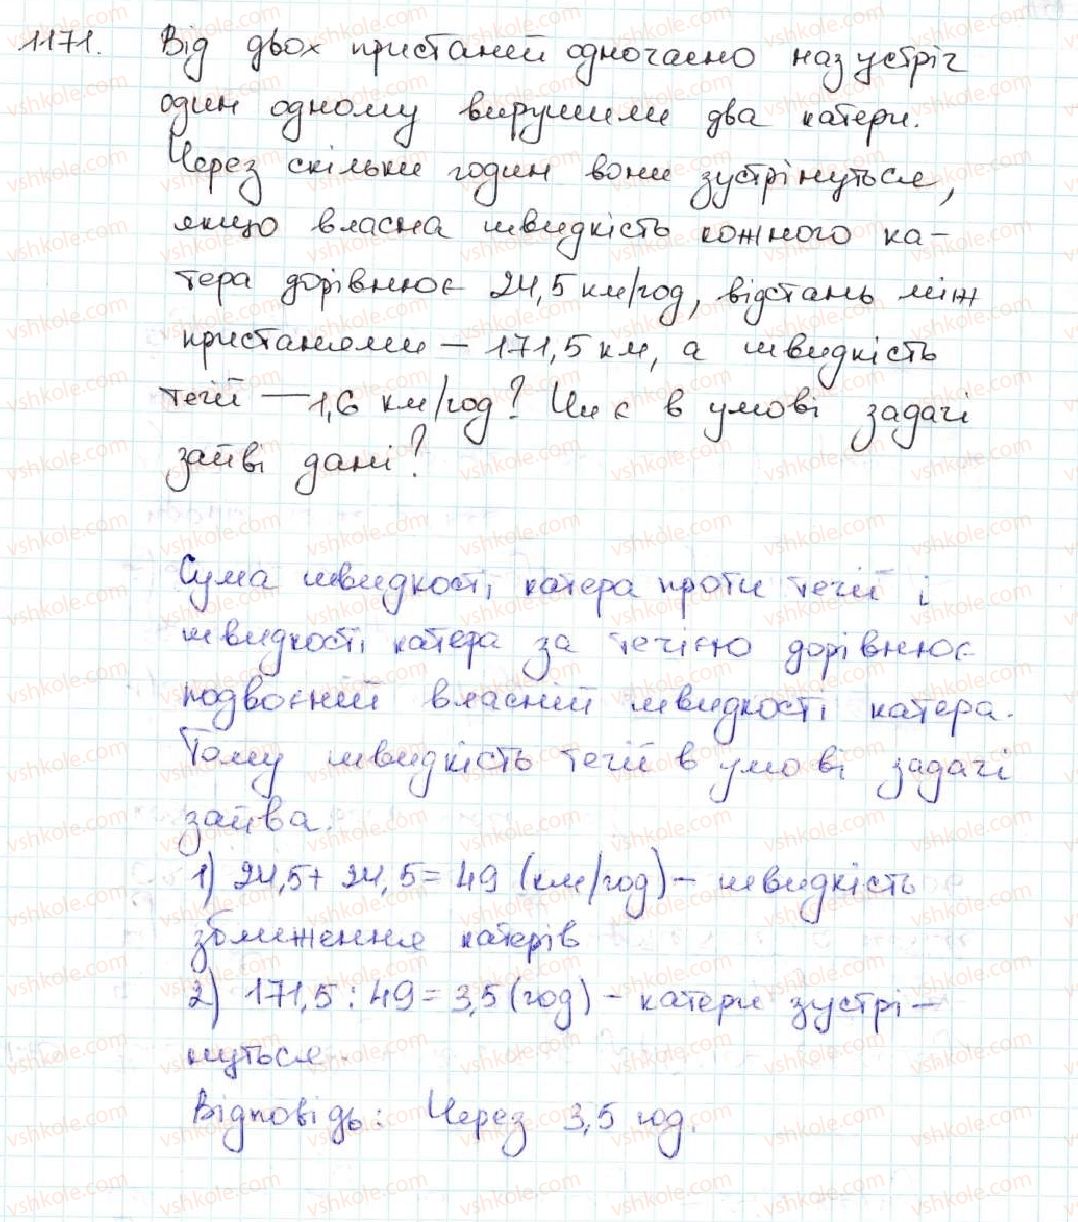 1171. Від двох пристаней одночасно назустріч
один одному вирушили два катери.
Через скільки годин вони зустрінуться,
якщо власна швидкість кожного ка-
тера дорівнює 24,5 км/год, відстань між
пристанями – 171,5 км, а швидкість
течії – 1,6 км/год? Чи є в умові задачі
зайві дані?
Сума швидкості катера проти течії і
швидкості катера за течією дорівнює
подвоєній власній швидкості катера.
Тому швидкість течії в умові задачі
зайва.
1) 24,5 + 24,5 = 49 (км/год) – швидкість
зближення катерів
2) 171,5 : 49 = 3,5 (год) – катери зустрі-
нуться.
Відповідь: Через 3,5 год.